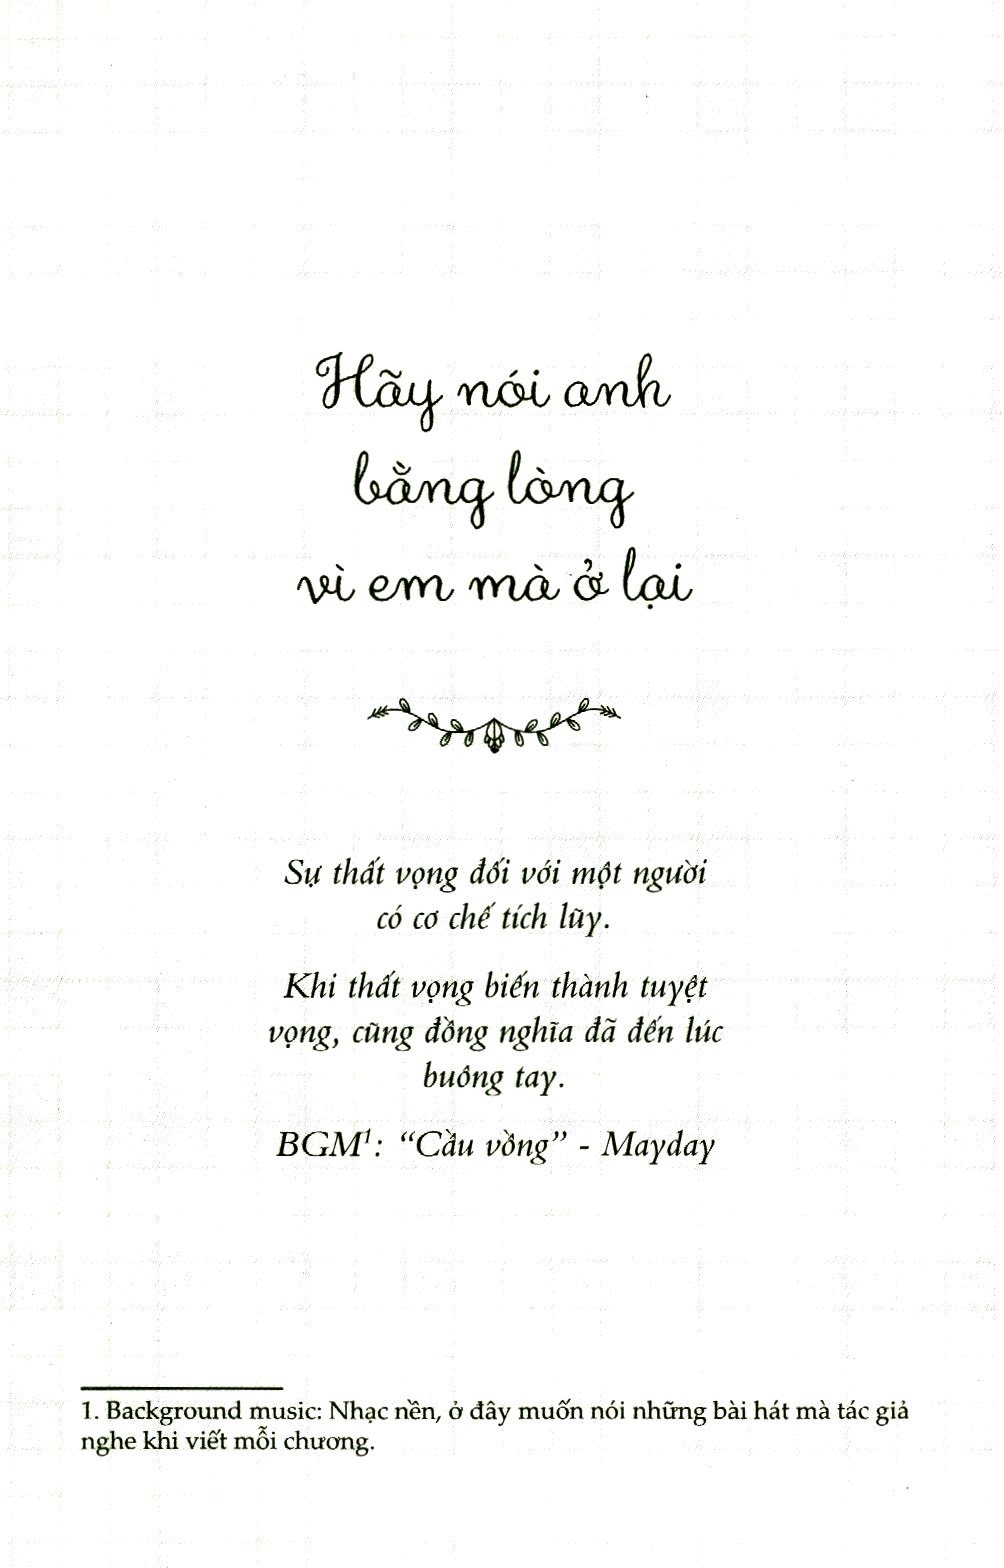 Hãy nói anh
bằng lòng
vì em mà ở lại
Sự thất vọng đối với một người
có cơ chế tích lũy.
Khi thất vọng biến thành tuyệt
vọng, cũng đồng nghĩa đã đến lúc
buông tay.
BGM¹: “Cầu vồng” - Mayday
1. Background music: Nhạc nền, ở đây muốn nói những bài hát mà tác giả
nghe khi viết mỗi chương.